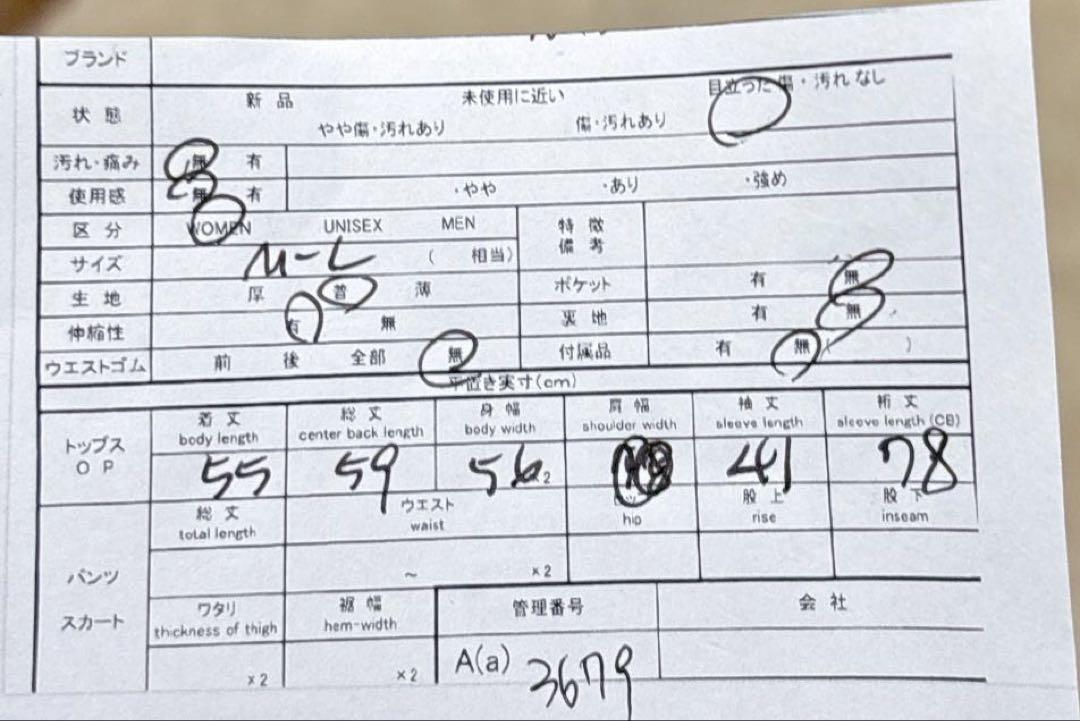 ブランド
状態 新品 未使用に近い 目立った傷・汚れなし
やや傷・汚れあり 傷・汚れあり
汚れ・痛み 無 有
使用感 無 有 ・やや ・あり ・強め
区分 WOMEN UNISEX MEN 特徴 備考
サイズ M-L ( 相当)
生地 厚 普 薄 ポケット 有 無
伸縮性 有 無 裏地 有 無
ウエストゴム 前 後 全部 無 付属品 有 無( )
平置き実寸(cm)
トップス OP 着丈 総丈 身幅 肩幅 袖丈 裄丈
body length center back length body width shoulder width sleeve length sleeve length(CB)
55 59 56 ×2 41 78
パンツ スカート 総丈 ウエスト 股上 股下
total length waist hip rise inseam
~ ×2
ワタリ 裾幅 管理番号 会社
thickness of thigh hem-width
×2 ×2 A(a) 3679